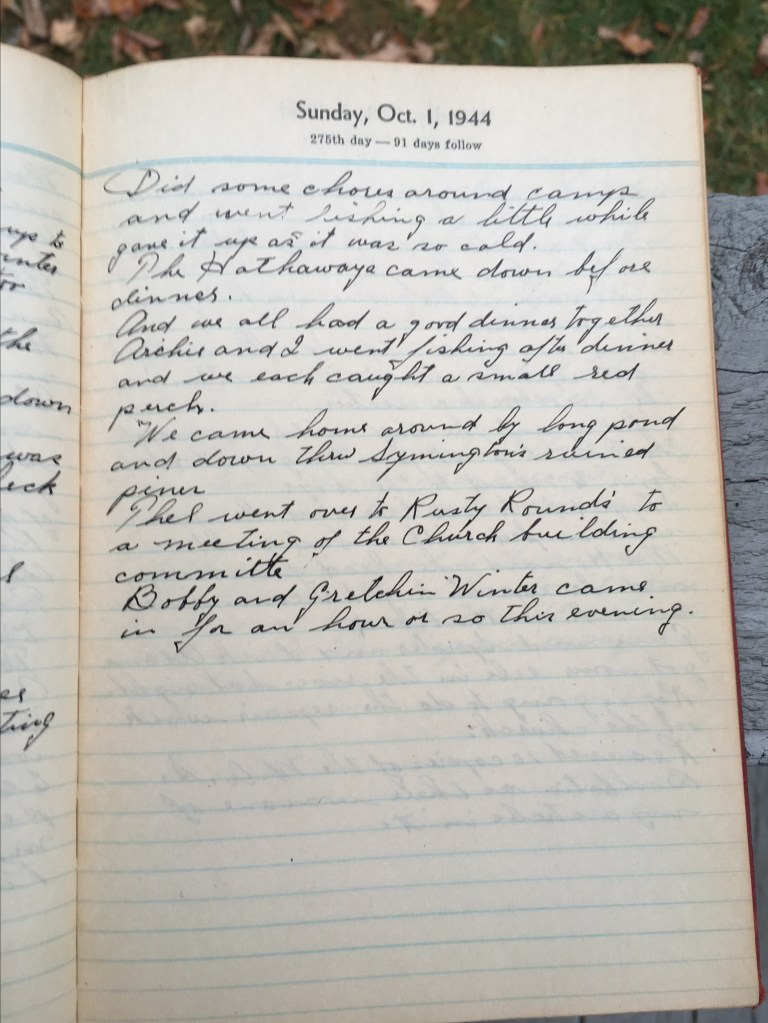 Sunday, Oct. 1, 1944
275th day — 91 days follow
Did some chores around camp
and went fishing a little while
gave it up as it was so cold.
The Hathaways came down before
dinner.
And we all had a good dinner together
Archie and I went fishing after dinner
and we each caught a small red
perch.
We came home around by long pond
and down thru Symington's ruined
piner
Thel went over to Rusty Rounds' to
a meeting of the Church building
committe
Bobby and Gretchin Winter came
in for an hour or so this evening.
up to
the
down
was